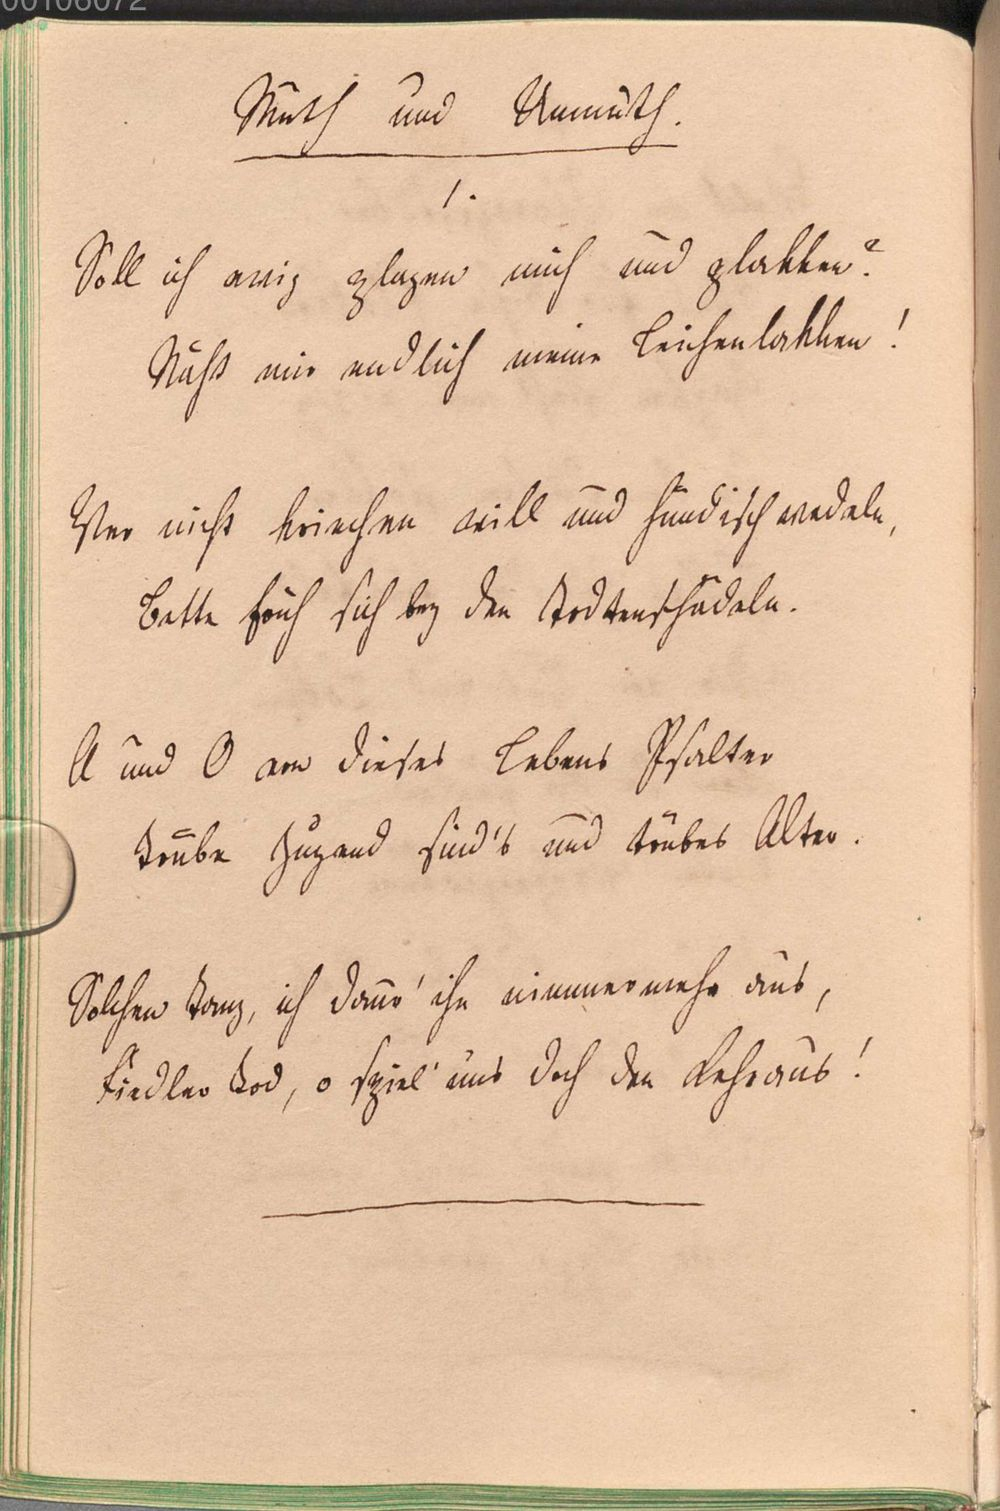 00106072
Muth und Unmuth.
1.
Soll ich ewig plagen mich und plakken?
Näht mir endlich meine Leichenlakken!
Wer nicht kriechen will und hündisch wedeln,
Bette früh sich bey den Todtenschädeln.
A und O von dieses Lebens Psalter
Trübe Jugend sind's und trübes Alter.
Solchen Tanz, ich daur' ihn nimmermehr aus,
Fiedler Tod, o spiel' uns doch den Kehraus!